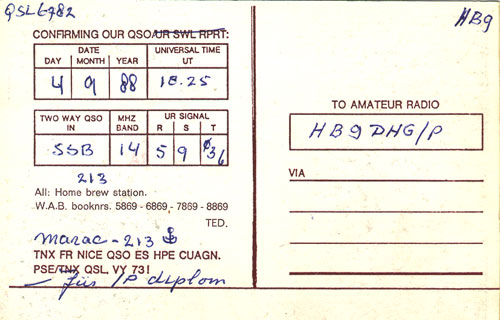 QSL 6982
HB9
CONFIRMING OUR QSO/UR SWL RPRT:
DATE
UNIVERSAL TIME
DAY MONTH YEAR UT
4 9 88 18.25
TWO WAY QSO IN
MHZ BAND
UR SIGNAL
R S T
SSB 14 5 9
213
All: Home brew station.
W.A.B. booknrs. 5869 - 6869 - 7869 - 8869
TED.
marac - 213
TNX FR NICE QSO ES HPE CUAGN.
PSE/TNX QSL, VY 73!
Für /P diplom
TO AMATEUR RADIO
HB9DHG/P
VIA